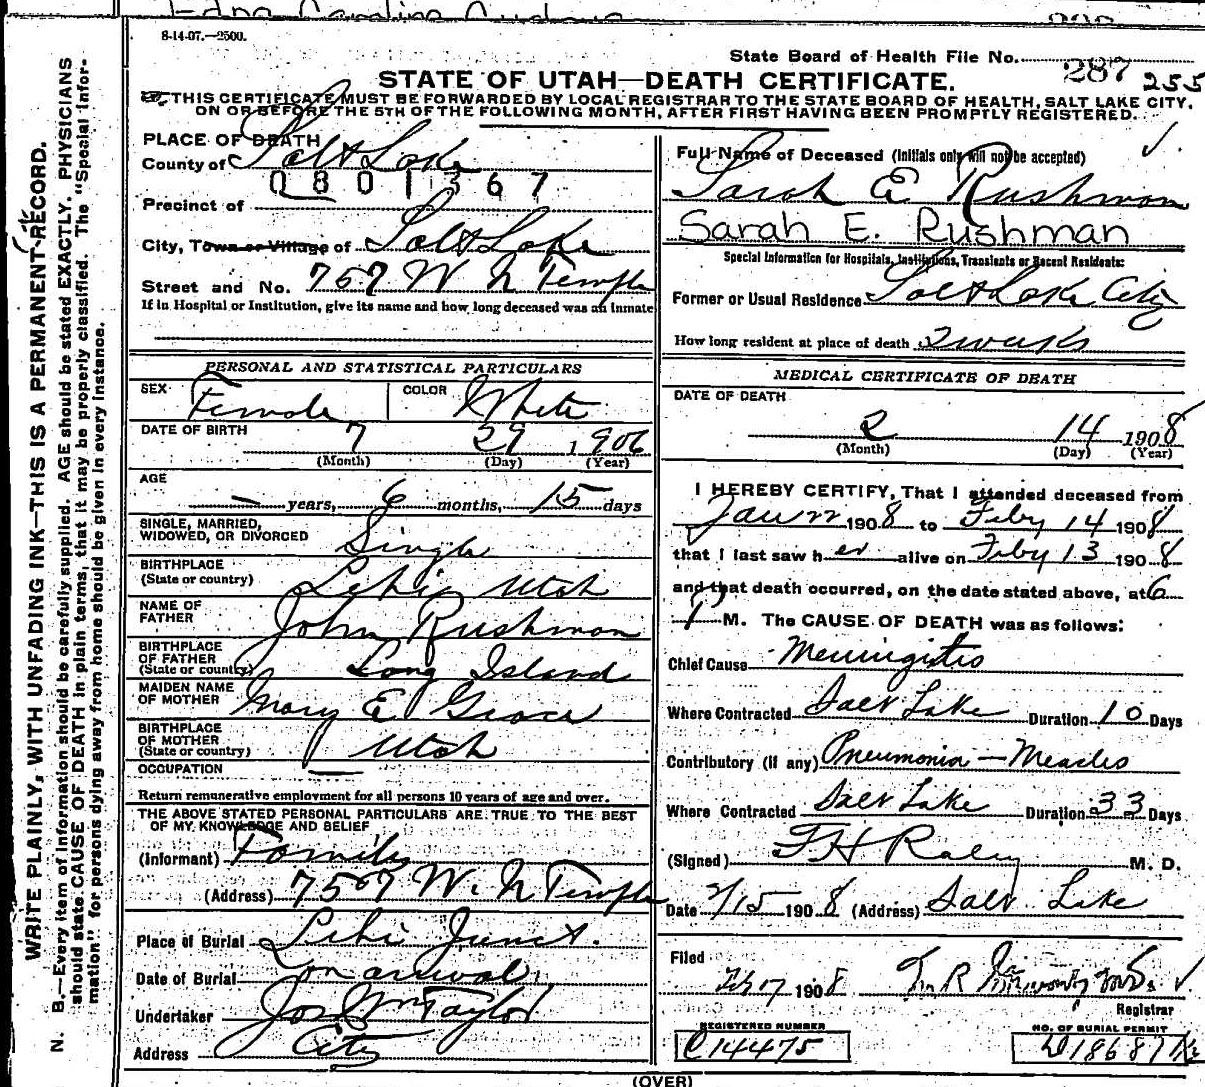 8-14-07.—2500.
State Board of Health File No. 287 255
STATE OF UTAH—DEATH CERTIFICATE.
THIS CERTIFICATE MUST BE FORWARDED BY LOCAL REGISTRAR TO THE STATE BOARD OF HEALTH, SALT LAKE CITY,
ON OR BEFORE THE 5TH OF THE FOLLOWING MONTH, AFTER FIRST HAVING BEEN PROMPTLY REGISTERED.
WRITE PLAINLY, WITH UNFADING INK—THIS IS A PERMANENT RECORD.
N. B.—Every item of information should be carefully supplied. AGE should be stated EXACTLY. PHYSICIANS
should state CAUSE OF DEATH in plain terms, that it may be properly classified. The "Special Infor-
mation" for persons dying away from home should be given in every instance.
PLACE OF DEATH
County of Salt Lake
0801367
Precinct of
City, Town or Village of Salt Lake
Street and No. 757 W N Temple
If in Hospital or Institution, give its name and how long deceased was an inmate
PERSONAL AND STATISTICAL PARTICULARS
SEX Female COLOR White
DATE OF BIRTH 7 29 1906
(Month) (Day) (Year)
AGE
— years, 6 months, 15 days
SINGLE, MARRIED,
WIDOWED, OR DIVORCED Single
BIRTHPLACE
(State or country) Lehi Utah
NAME OF
FATHER John Rushman
BIRTHPLACE
OF FATHER
(State or country) Long Island
MAIDEN NAME
OF MOTHER Mary E Grace
BIRTHPLACE
OF MOTHER
(State or country) Utah
OCCUPATION —
Return remunerative employment for all persons 10 years of age and over.
THE ABOVE STATED PERSONAL PARTICULARS ARE TRUE TO THE BEST
OF MY KNOWLEDGE AND BELIEF
(Informant) Family
(Address) 757 W. N Temple
Place of Burial Lehi Junct.
Date of Burial On arrival
Undertaker Jos Wm Taylor
Address City
Full Name of Deceased (Initials only will not be accepted)
Sarah E Rushman
Sarah E. Rushman
Special Information for Hospitals, Institutions, Transients or Recent Residents:
Former or Usual Residence Salt Lake City
How long resident at place of death 2 weeks
MEDICAL CERTIFICATE OF DEATH
DATE OF DEATH
2 14 1908
(Month) (Day) (Year)
I HEREBY CERTIFY, That I attended deceased from
Jan 1908 to Feby 14 1908
that I last saw her alive on Feby 13 1908
and that death occurred, on the date stated above, at 6
M. The CAUSE OF DEATH was as follows:
Chief Cause Meningitis
Where Contracted Salt Lake Duration 10 Days
Contributory (if any) Pneumonia — Measles
Where Contracted Salt Lake Duration 33 Days
(Signed) T H Raley M. D.
Date 2/15 1908 (Address) Salt Lake
Filed
Feb 17 1908
Registrar
REGISTERED NUMBER
C14475
NO. OF BURIAL PERMIT
D18687
(OVER)